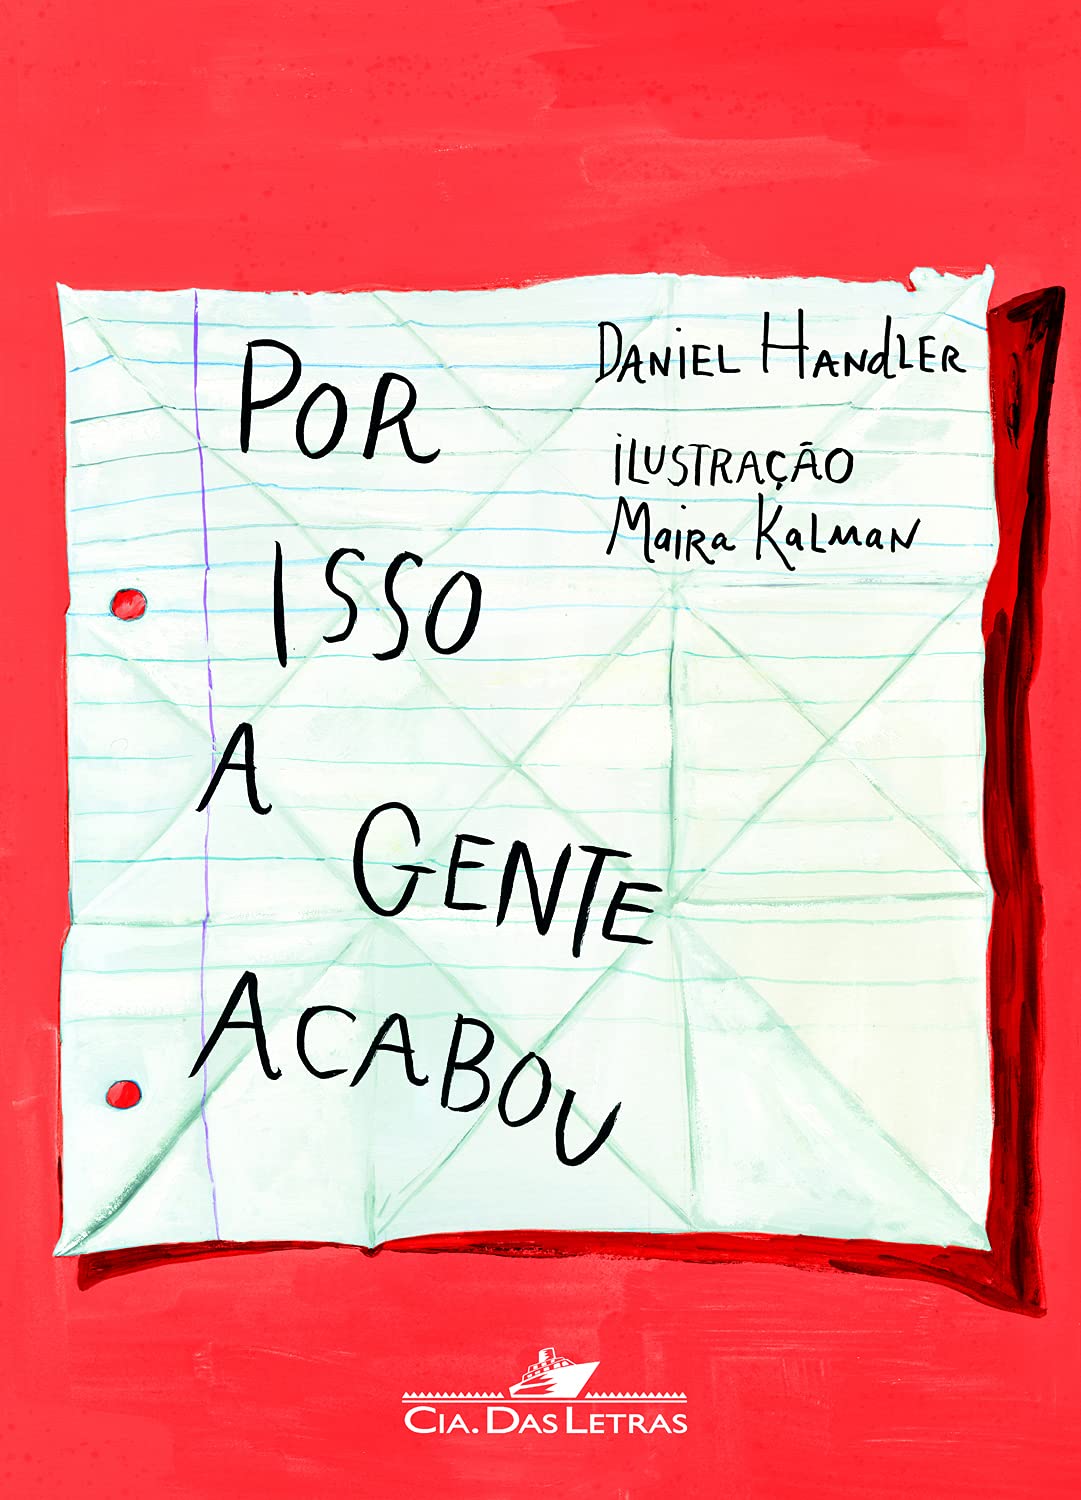 POR
ISSO
A
GENTE
ACABOU
DANIEL HANDLER
ILUSTRAÇÃO
MAIRA KALMAN
CIA. DAS LETRAS